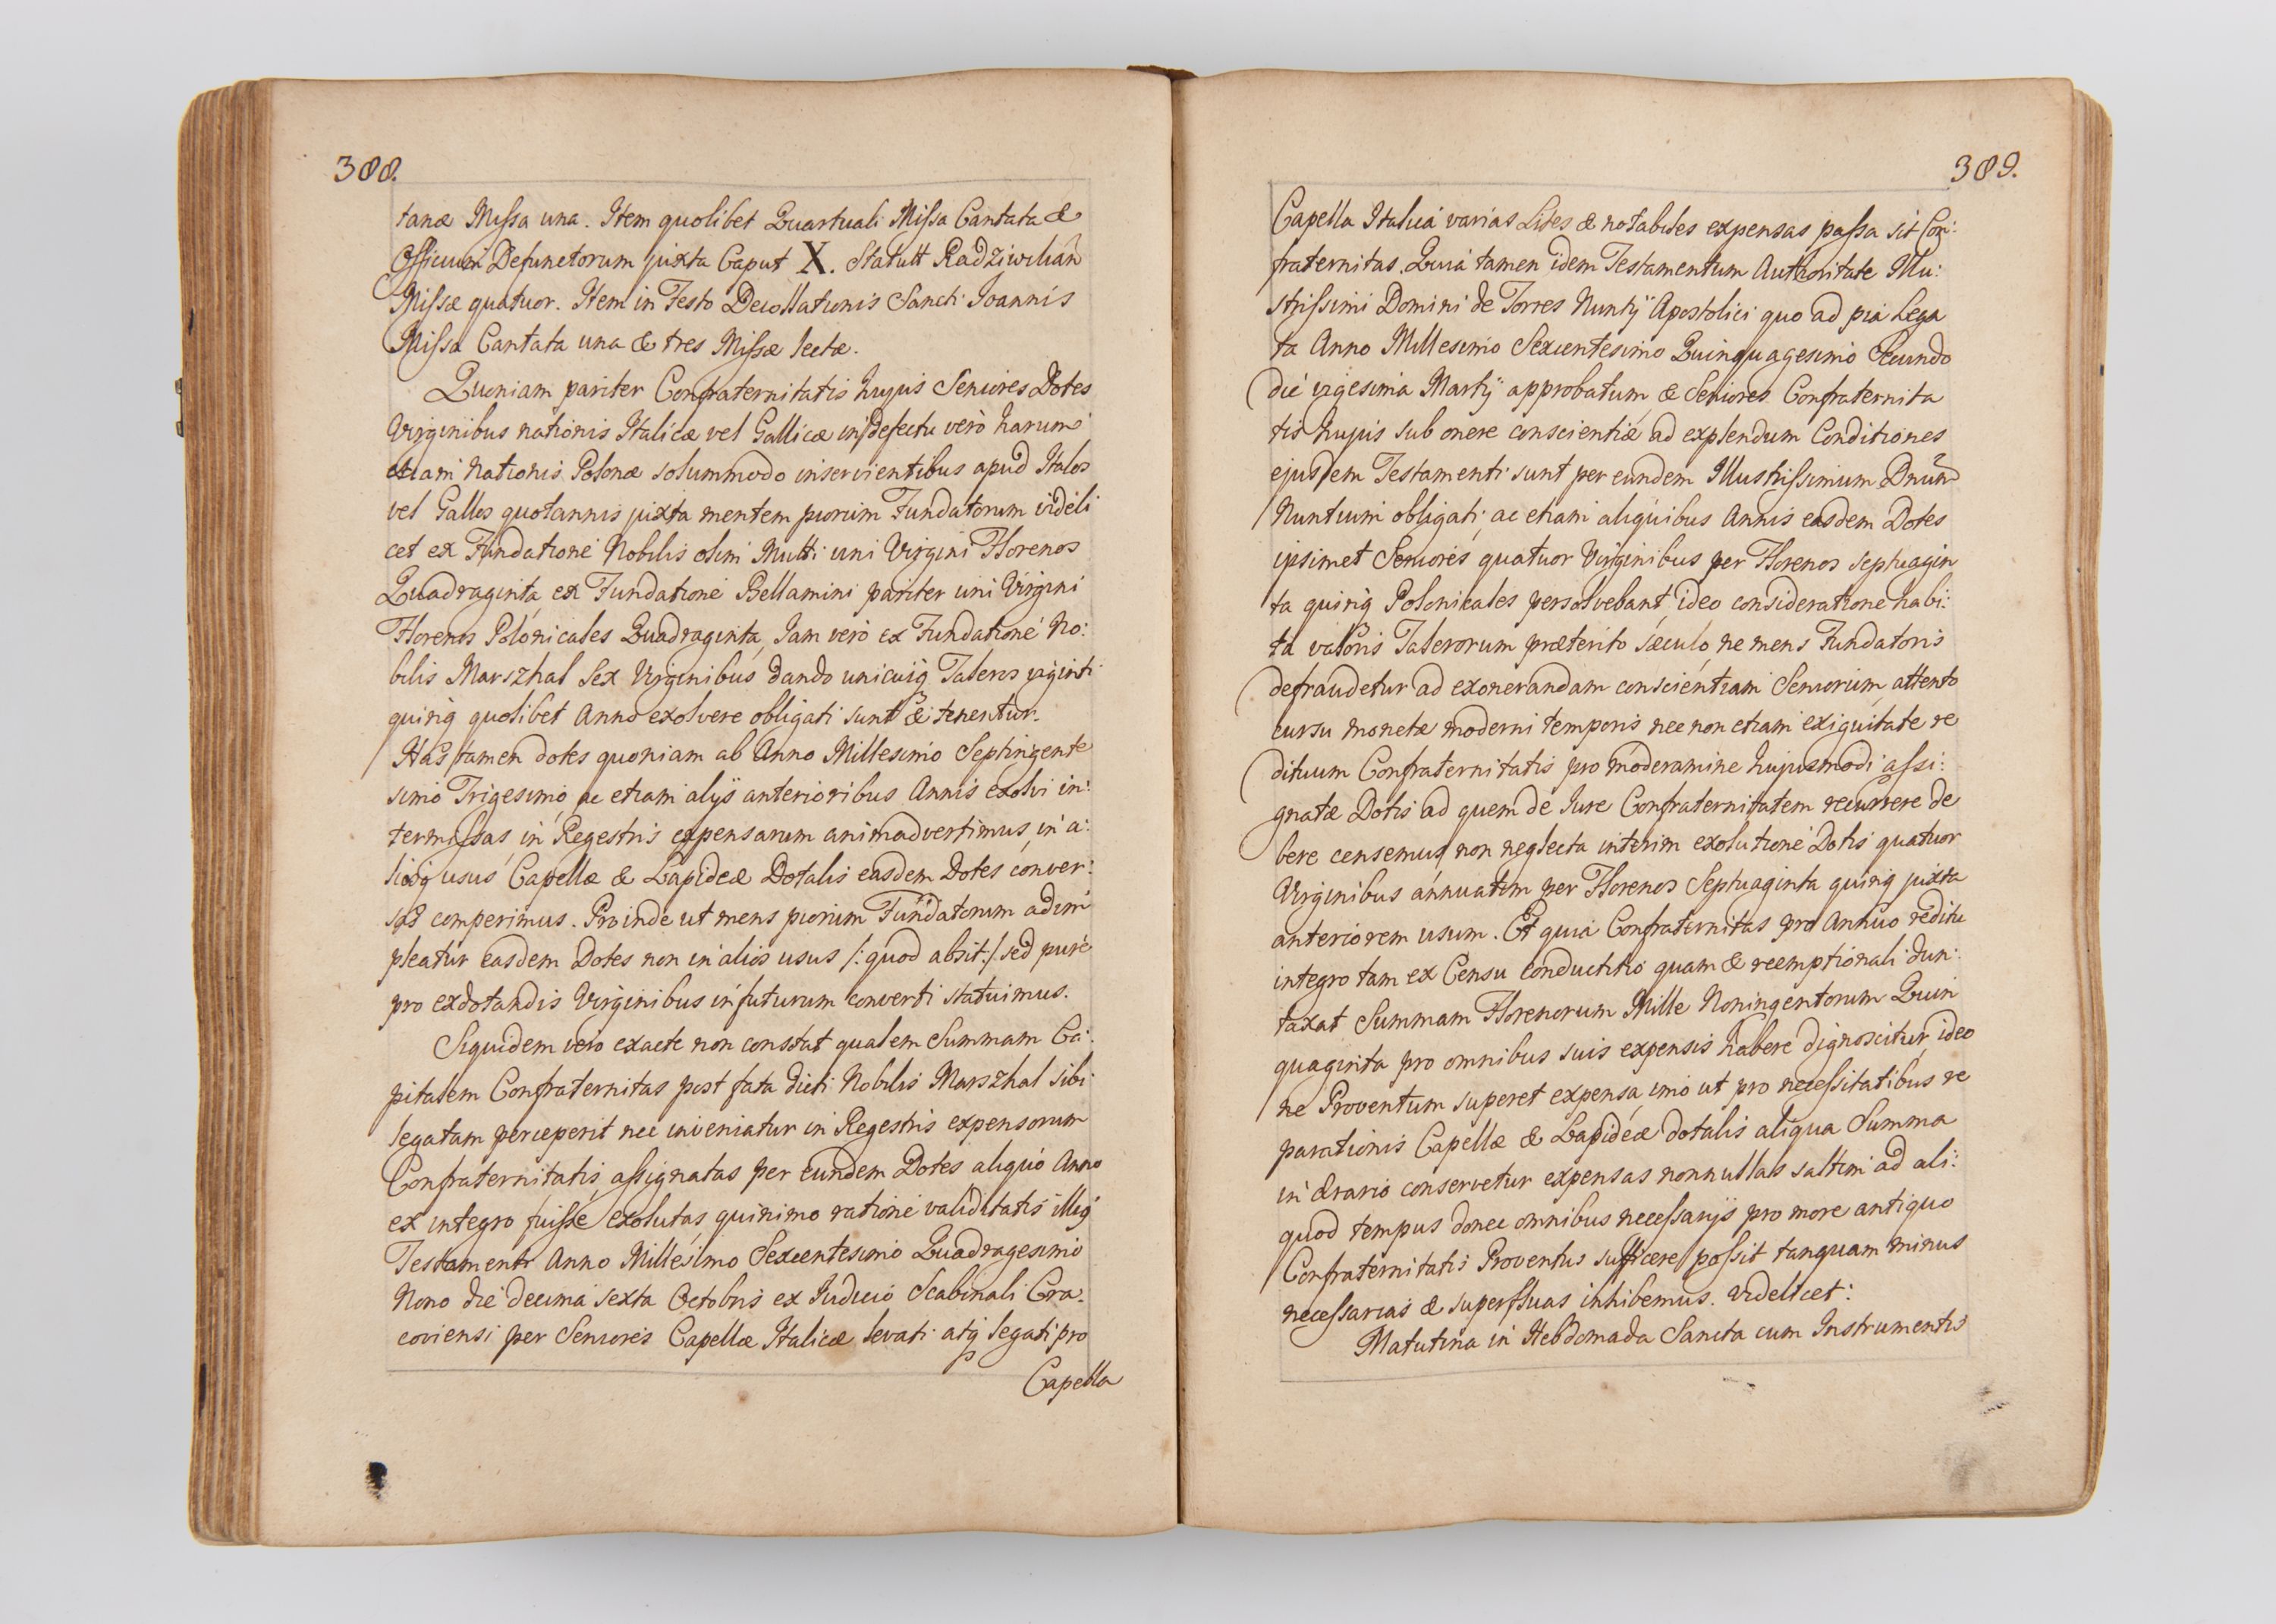 388.
tanæ Missa una. Item quolibet Quartuali Missa Cantata &
Officium Defunctorum juxta Caput X. Statutt Radziwilian
Missæ quatuor. Item in Festo Decollationis Sancti Joannis
Missa Cantata una & tres Missæ lectæ.
Quoniam pariter Confraternitatis hujus Seniores Dotes
Virginibus nationis Italicæ vel Gallicæ in defectu verò harum
etiam Nationis Polonæ solummodo inservientibus apud Italos
vel Gallos quotannis juxta mentem piorum Fundatorum videli
cet ex Fundatione Nobilis olim Mutti uni Virgini Florenos
Quadraginta, ex Fundatione Bellamini pariter uni Virgini
Florenos Polonicales Quadraginta, Jam verò ex Fundatione No:
bilis Marszhal Sex Virginibus dando unicuiq Taleros viginti
quinq quolibet Anno exolvere obligati sunt & tenentur.
Has tamen dotes quoniam ab Anno Millesimo Septingente
simo Trigesimo, ac etiam alijs anterioribus Annis exolvi in:
termissas, in Regestris expensarum animadvertimus, in a:
liosq usus Capellæ & Lapideæ Dotalis easdem Dotes conver:
sas comperimus. Proinde ut mens piorum Fundatorum adim
pleatur easdem Dotes non in alios usus /: quod absit :/ sed purè
pro exdotandis Virginibus in futurum converti statuimus.
Siquidem vero exacte non constat qualem Summam Ca:
pitalem Confraternitas post fata dicti Nobilis Marszhal sibi
legatam perceperit nec inveniatur in Regestris expensorum
Confraternitatis, assignatas per eundem Dotes aliquo Anno
ex integro fuisse exolutas, quinimo ratione validitatis illiq
Testamenti Anno Millesimo Sexcentesimo Quadragesimo
Nono die decima sexta Octobris ex Judicio Scabinali Cra-
coviensi per Seniores Capellæ Italicæ levati atq legati pro
Capella
389.
Capella Italica varias Lites & notabiles expensas passa sit Con:
fraternitas. Quia tamen idem Testamentum Authoritate Illu:
strissimi Domini de Torres Nuntij Apostolici quo ad pia Lega
ta Anno Millesimo Sexcentesimo Quinquagesimo Secundo
die vigesima Martij approbatum, & Seniores Confraternita
tis hujus sub onere conscientiæ ad explendum Conditiones
ejusdem Testamenti sunt per eundem Illustrissimum Dnum
Nuntium obligati, ac etiam aliquibus Annis easdem Dotes
ipsimet Seniores quatuor Virginibus per Florenos septuagin
ta quinq Polonicales persolvebant, ideo consideratione habi:
ta valoris Talerorum præterito sæculo, ne mens Fundatoris
defraudetur ad exonerandam conscientiam Seniorum, attento
cursu monetæ moderni temporis nec non etiam exiguitate re
dituum Confraternitatis pro moderamine hujusmodi assi:
gnatæ Dotis ad quem de Jure Confraternitatem recurrere de
bere censemus, non neglecta interim exolutione Dotis quatuor
Virginibus annuatim per Florenos Septuaginta quinq juxta
anteriorem usum. Et quia Confraternitas pro Annuo reditu
integro tam ex Censu conductitio quam & reemptionali dun:
taxat Summam Florenorum Mille Noningentorum Quin
quaginta pro omnibus suis expensis habere dignoscitur, ideo
ne Proventum superet expensa, imo ut pro necessitatibus re
parationis Capellæ & Lapideæ dotalis aliqua Summa
in ærario conservetur expensas nonnullas saltim ad ali:
quod tempus donec omnibus necessarijs pro more antiquo
Confraternitatis Proventus sufficere possit tanquam minus
necessarias & superfluas inhibemus. Videlicet:
Matutina in Hebdomada Sancta cum Instrumentis